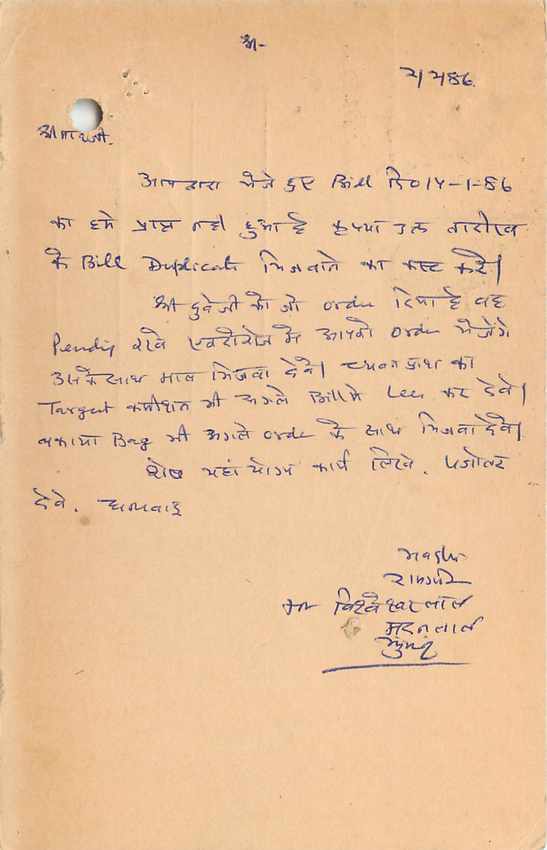 श्री-
2/2/86
श्रीमानजी.
आपके द्वारा भेजे हुए Bill दि० 14-1-86
का हमे प्राप्त नही हुआ है कृपया उक्त तारीख
के Bill Duplicate भिजवाने का कष्ट करे।
श्री दुबेजी को जो order दिया है वह
Pending रखे एक दो रोज मे आपको order भेजेंगे
उसके साथ माल भिजवा देवे। च्यवनप्राश का
Target कमीशन भी अगले Bill मे Less कर देवे।
बकाया Bag भी अगले order के साथ भिजवा देवे।
शेष यहां योग्य कार्य लिखे. पत्रोत्तर
देवे. धन्यवाद
विश्वेश्वरलाल
मदनलाल